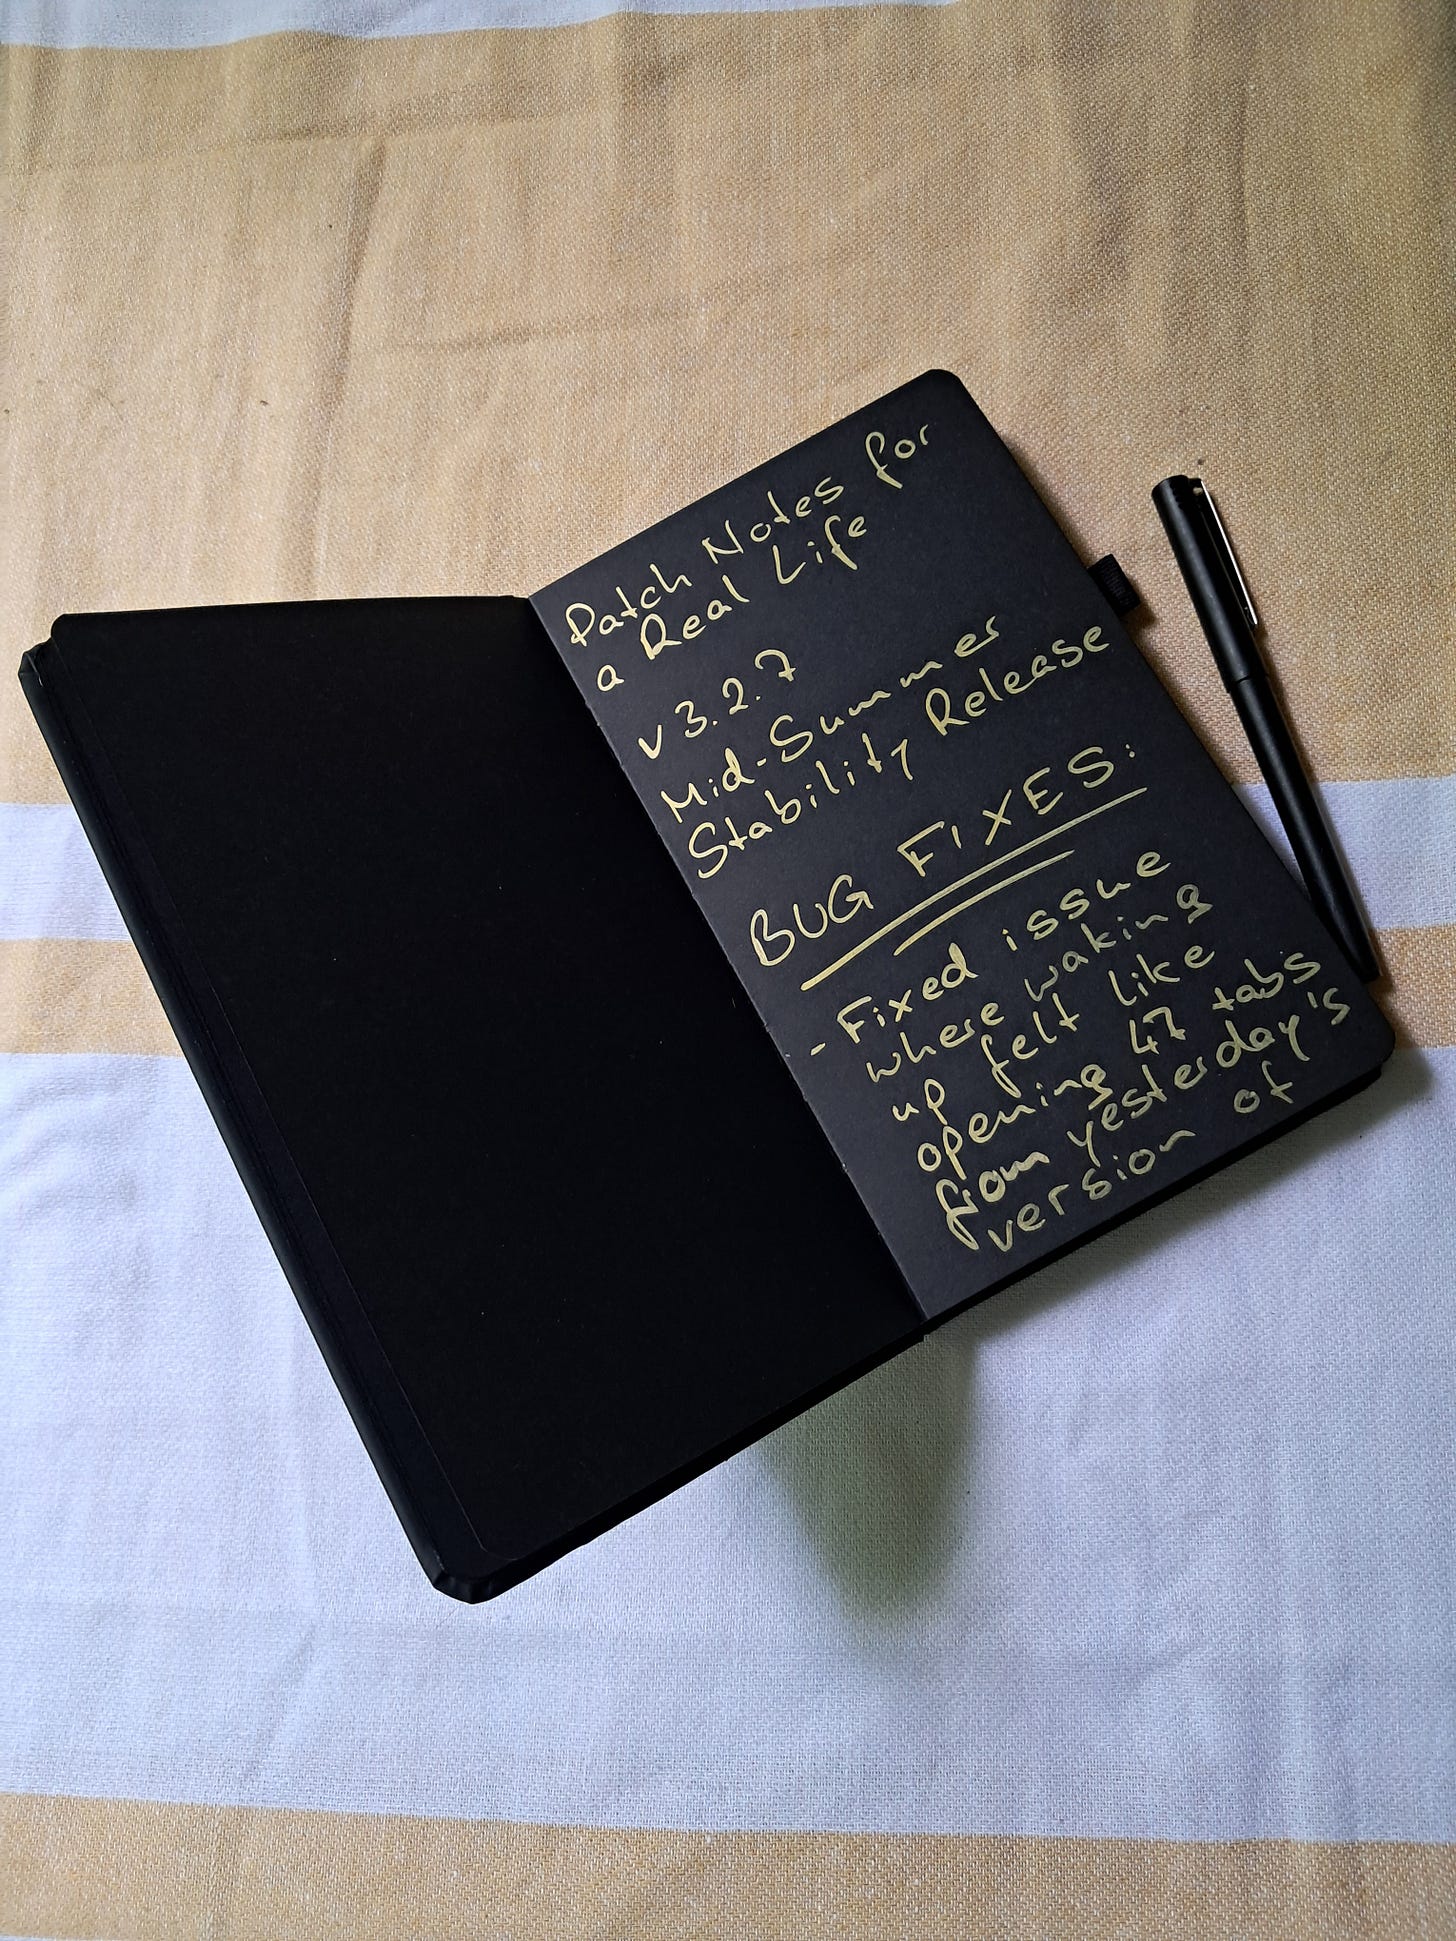 Patch Notes for
a Real Life
v3.2.7
Mid-Summer
Stability Release
BUG FIXES:
- Fixed issue
where waking
up felt like
opening 47 tabs
from yesterday's
version of